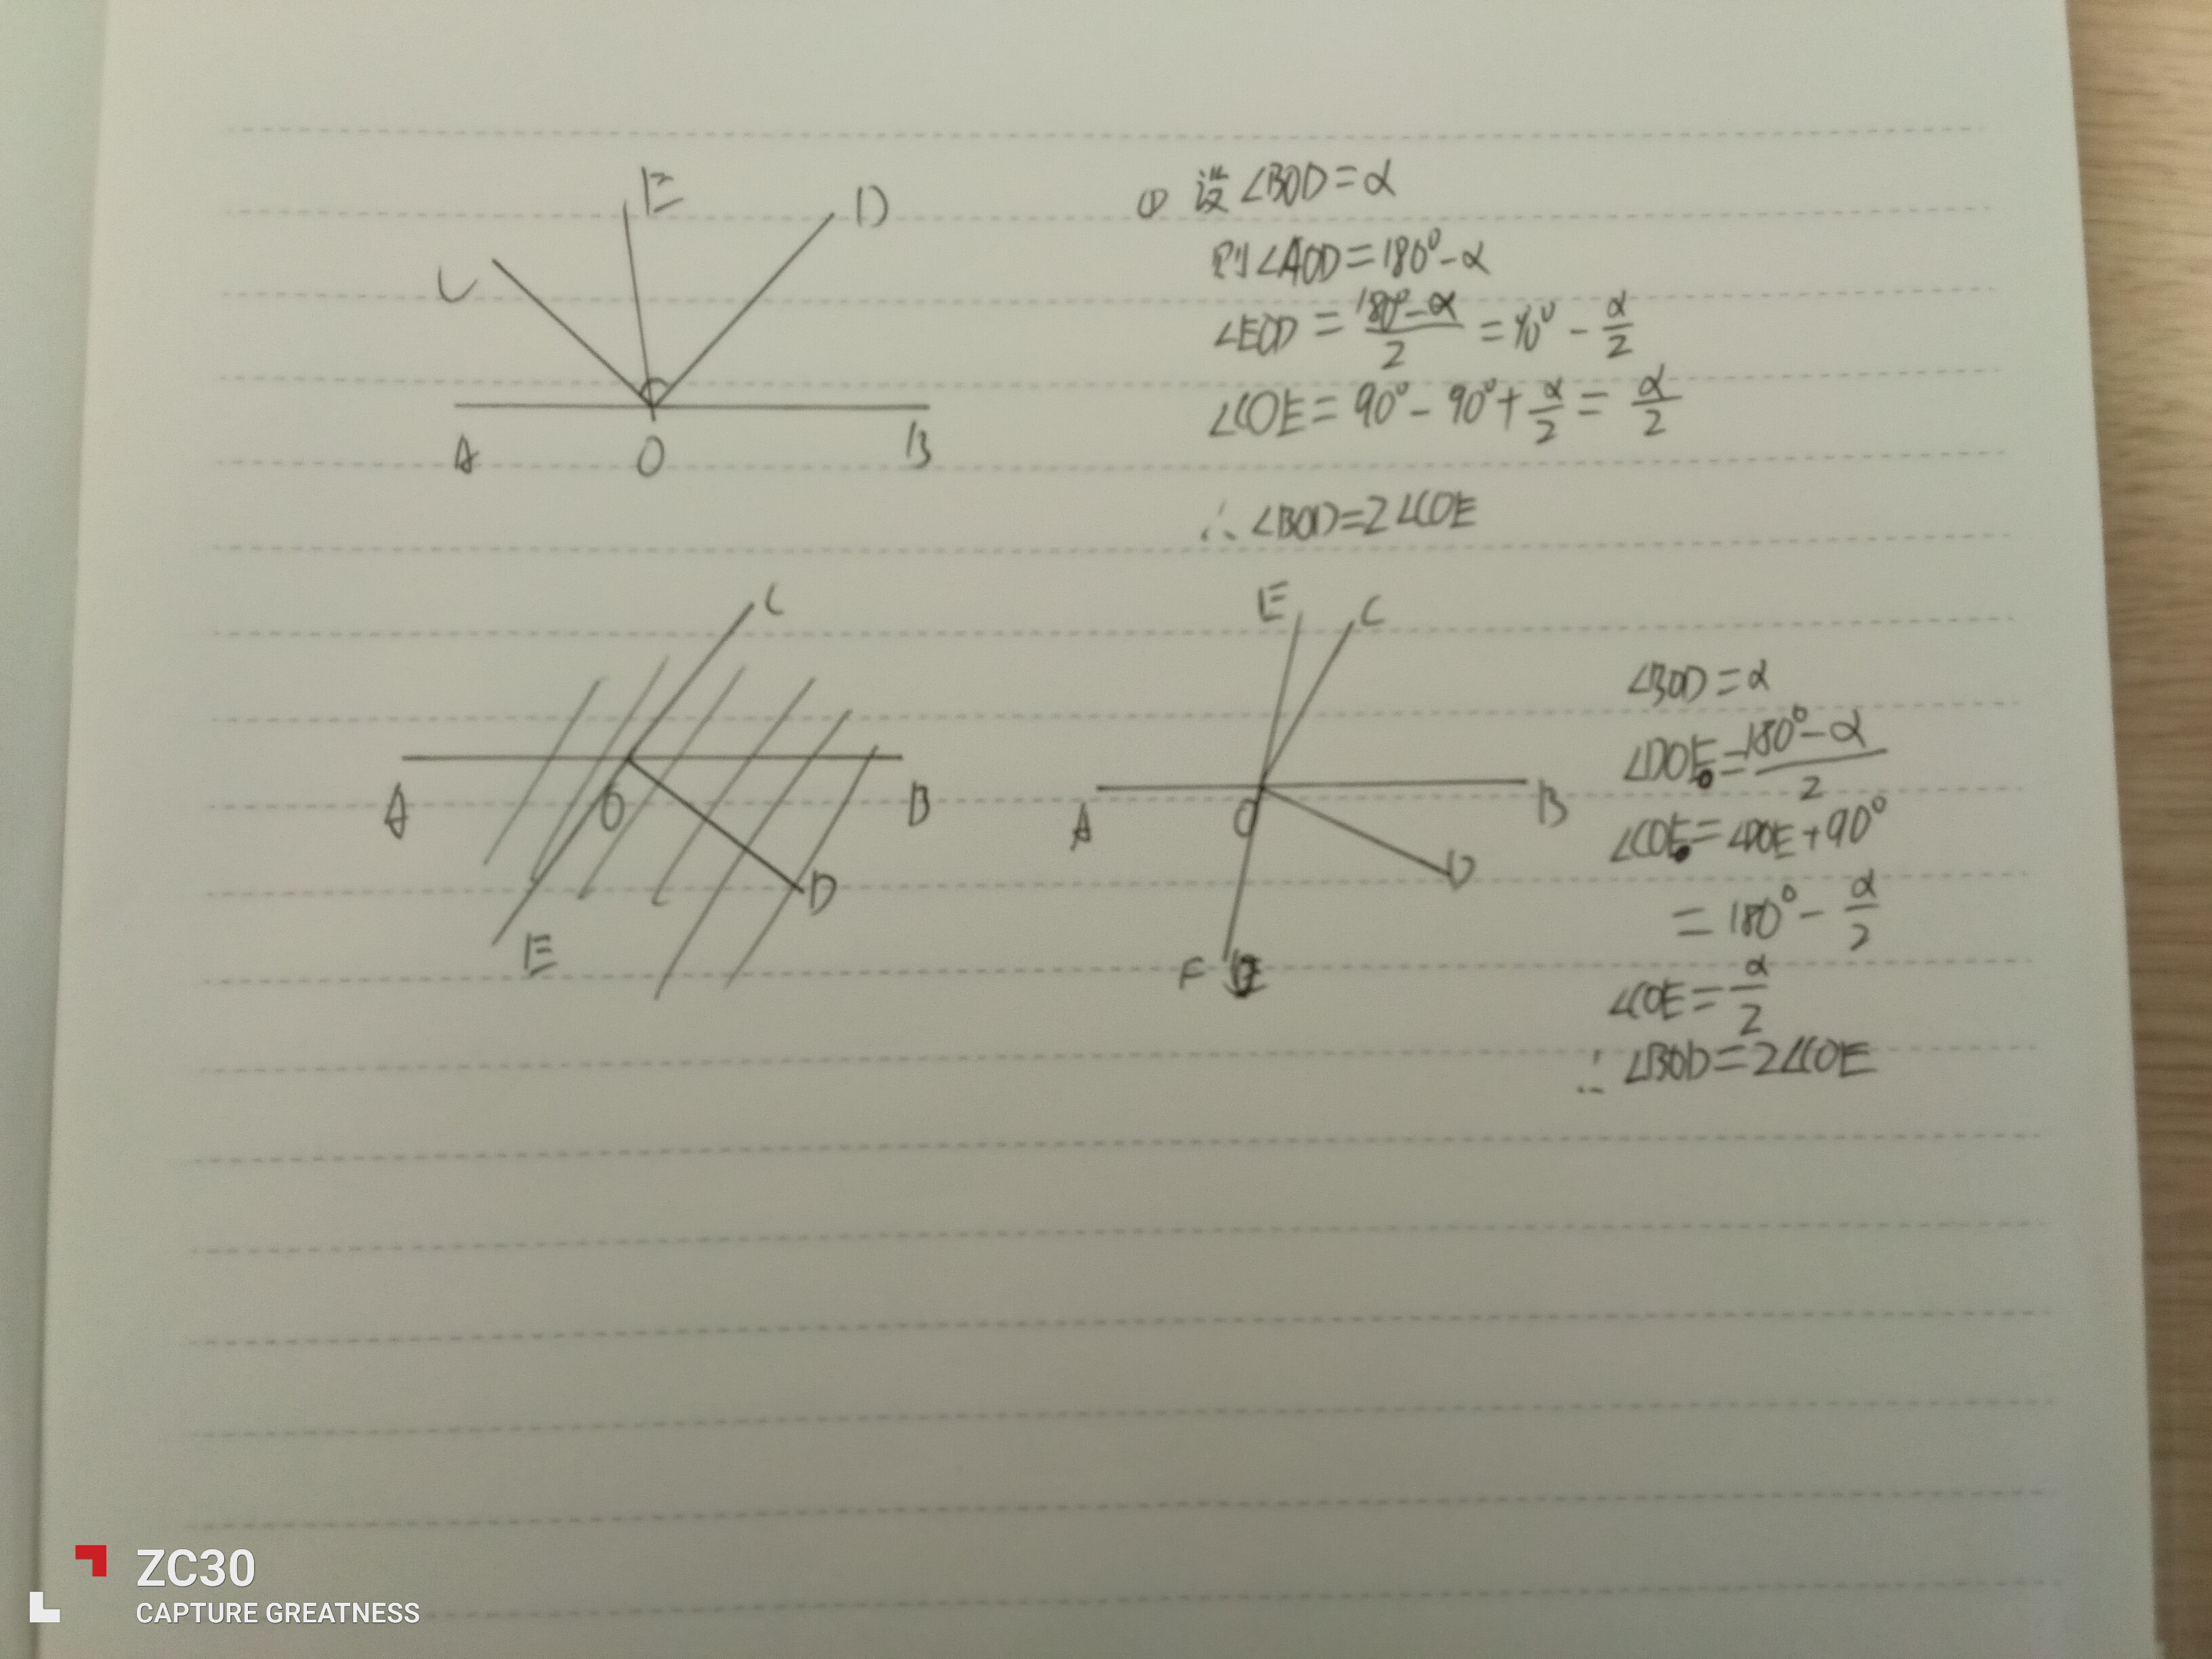 E
D
C
A O B
① 设∠BOD=α
则∠AOD=180°-α
∠EOD=\frac{180°-α}{2}=90°-\frac{α}{2}
∠COE=90°-90°+\frac{α}{2}=\frac{α}{2}
∴∠BOD=2∠COE
C
A O B
D
E
E C
A O B
D
F
∠BOD=α
∠DOE=\frac{180°-α}{2}
∠COE=∠DOE+90°
=180°-\frac{α}{2}
∠COE=\frac{α}{2}
∴∠BOD=2∠COE
ZC30
CAPTURE GREATNESS